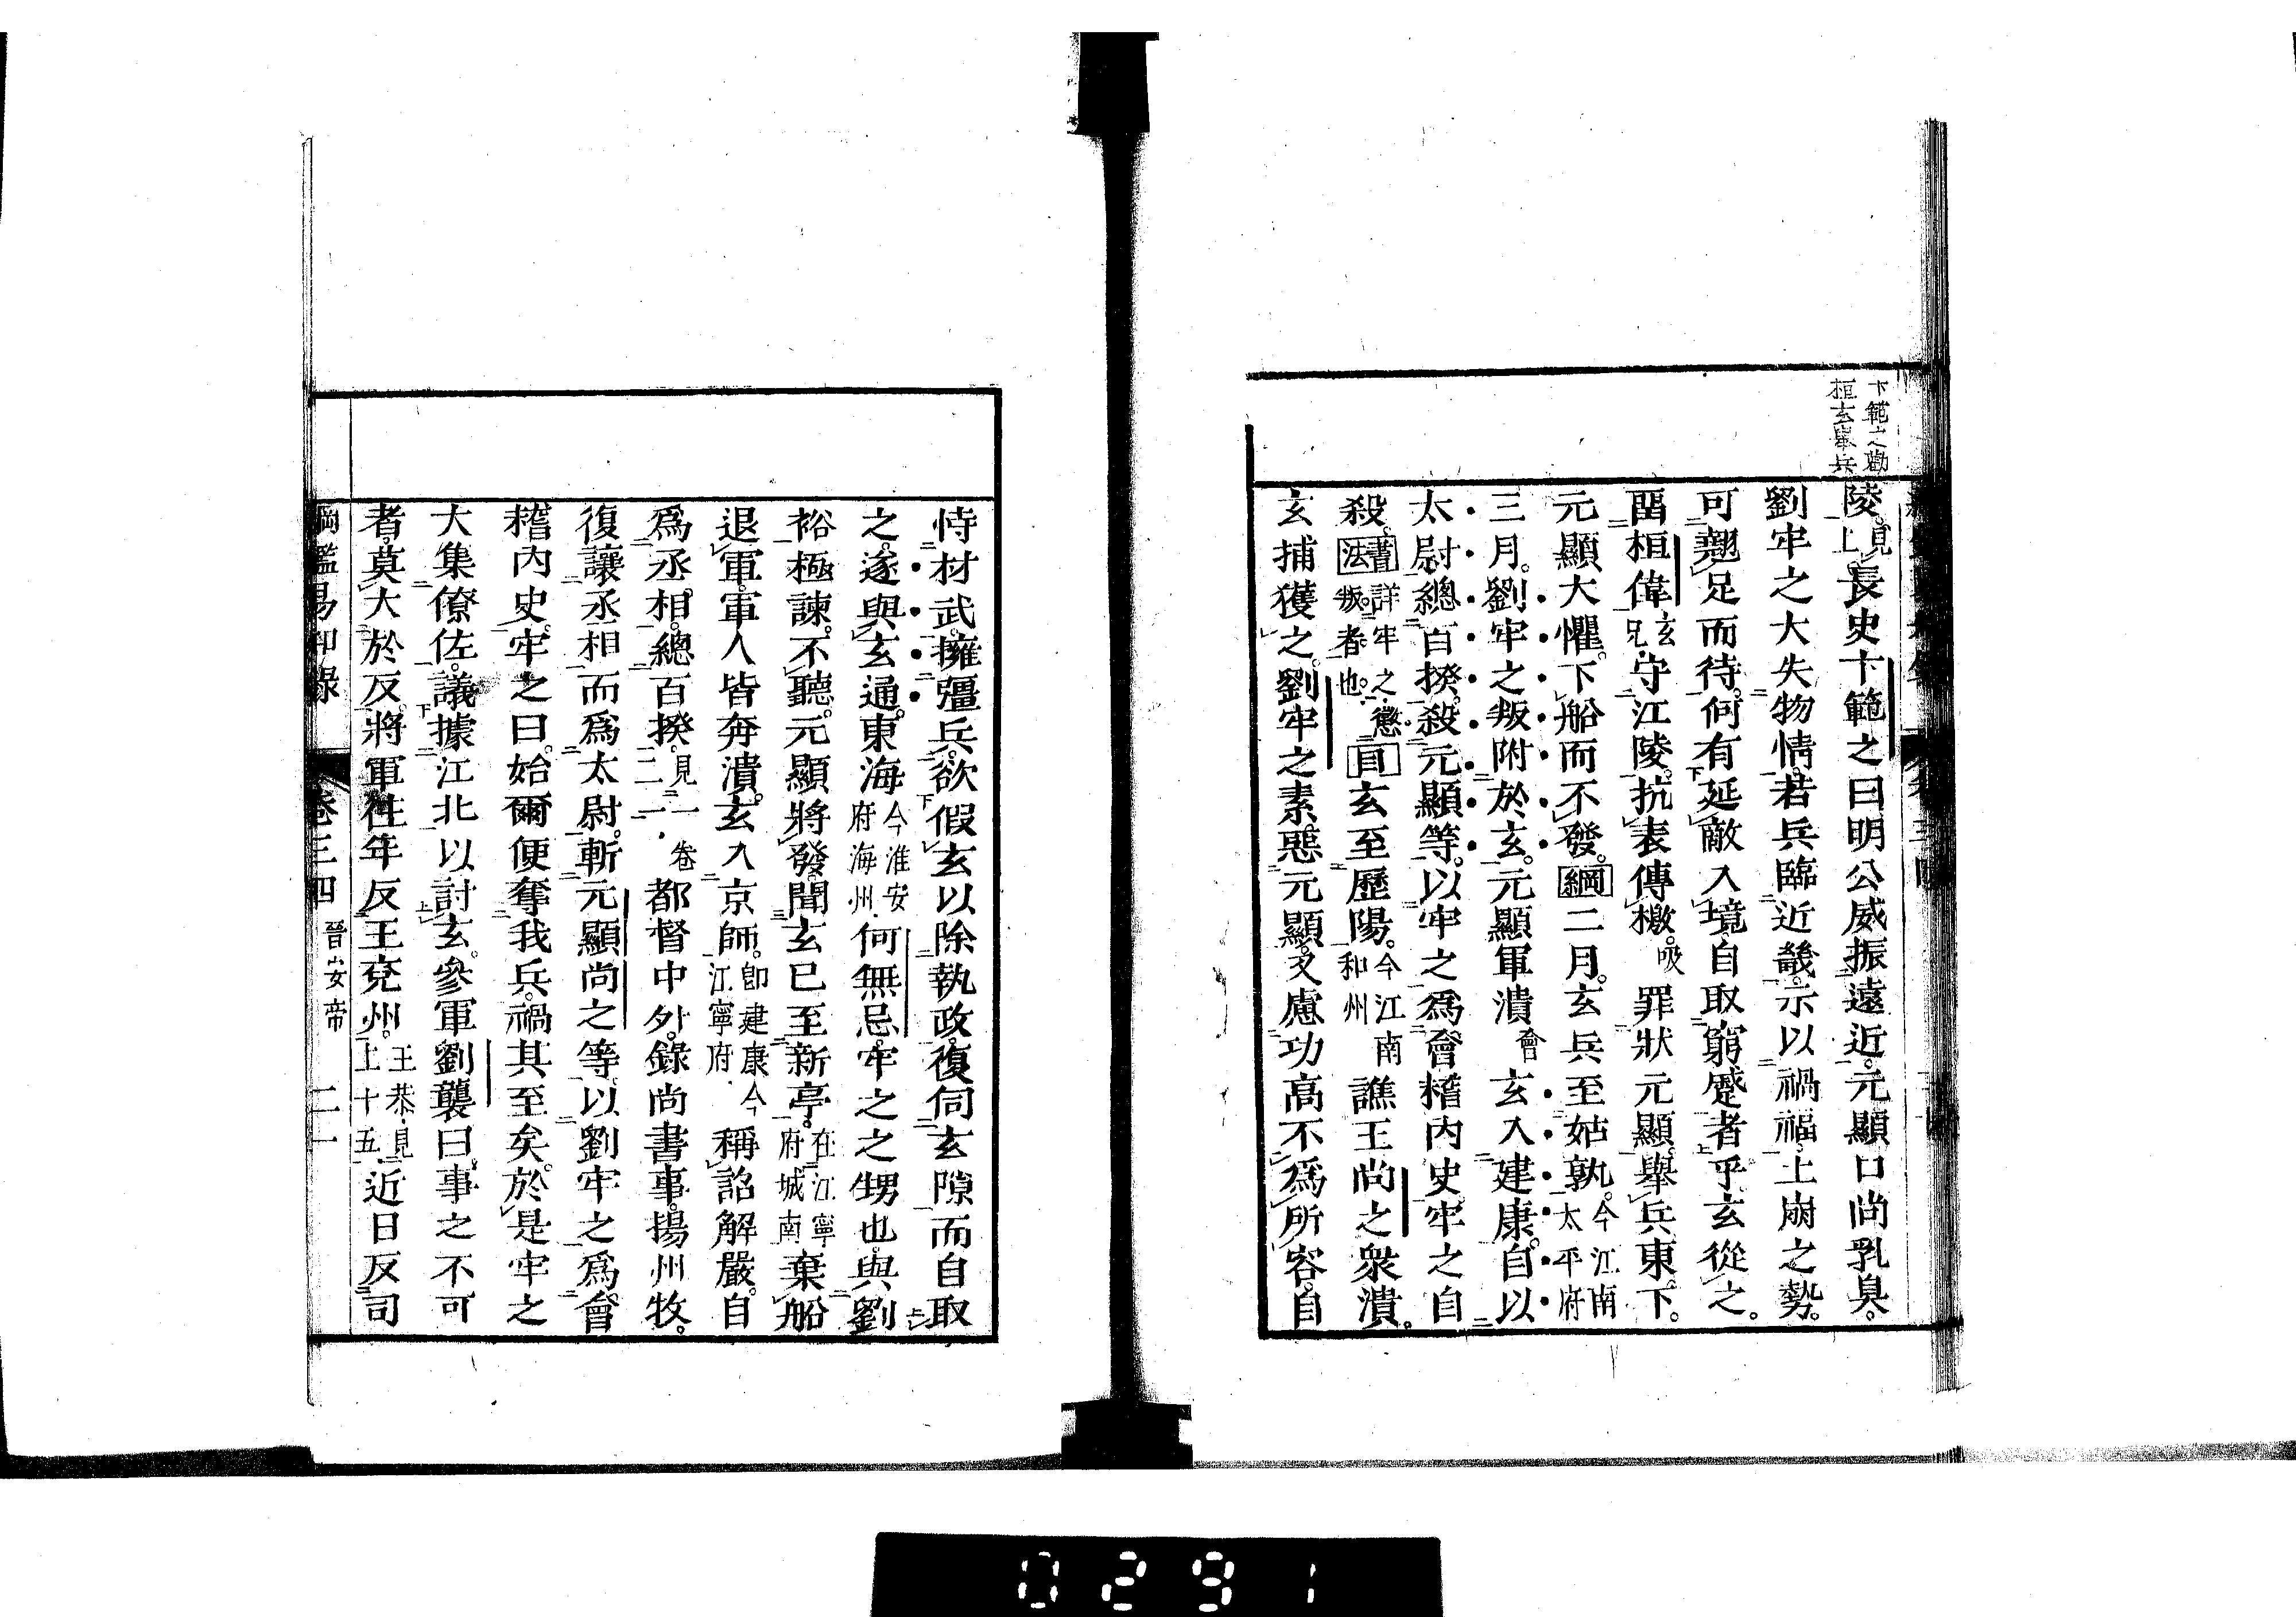 卞範之勸
桓玄舉兵
陵見上長史卞範之曰明公威振遠近元顯口尚乳臭
劉牢之大失物情若兵臨近畿示以禍福土崩之勢
可翹足而待何有延敵入境自取窮蹙者乎玄從之
畱桓偉玄兄守江陵抗表傳檄吸罪狀元顯舉兵東下
元顯大懼下船而不發綱二月玄兵至姑孰今江南太平府
三月劉牢之叛附於玄元顯軍潰會玄入建康自以
太尉總百揆殺元顯等以牢之爲會稽內史牢之自
殺書法詳牢之懲叛者也目玄至歷陽今江南和州譙王尚之衆潰
玄捕獲之劉牢之素惡元顯又慮功高不爲所容自
恃材武擁彊兵欲假玄以除執政復伺玄隙而自取
之遂與玄通東海今淮安府海州何無忌牢之之甥也與劉
裕極諫不聽元顯將發聞玄已至新亭在江寧府城南棄船
退軍軍人皆奔潰玄入京師卽建康今江寧府稱詔解嚴自
爲丞相總百揆見一卷二一都督中外錄尚書事揚州牧
復讓丞相而爲太尉斬元顯尚之等以劉牢之爲會
稽內史牢之曰始爾便奪我兵禍其至矣於是牢之
大集僚佐議據江北以討玄參軍劉襲曰事之不可
者莫大於反將軍往年反王兗州王恭見上十五近日反司
綱鑑易知錄 卷三四 晉安帝 二一
0291